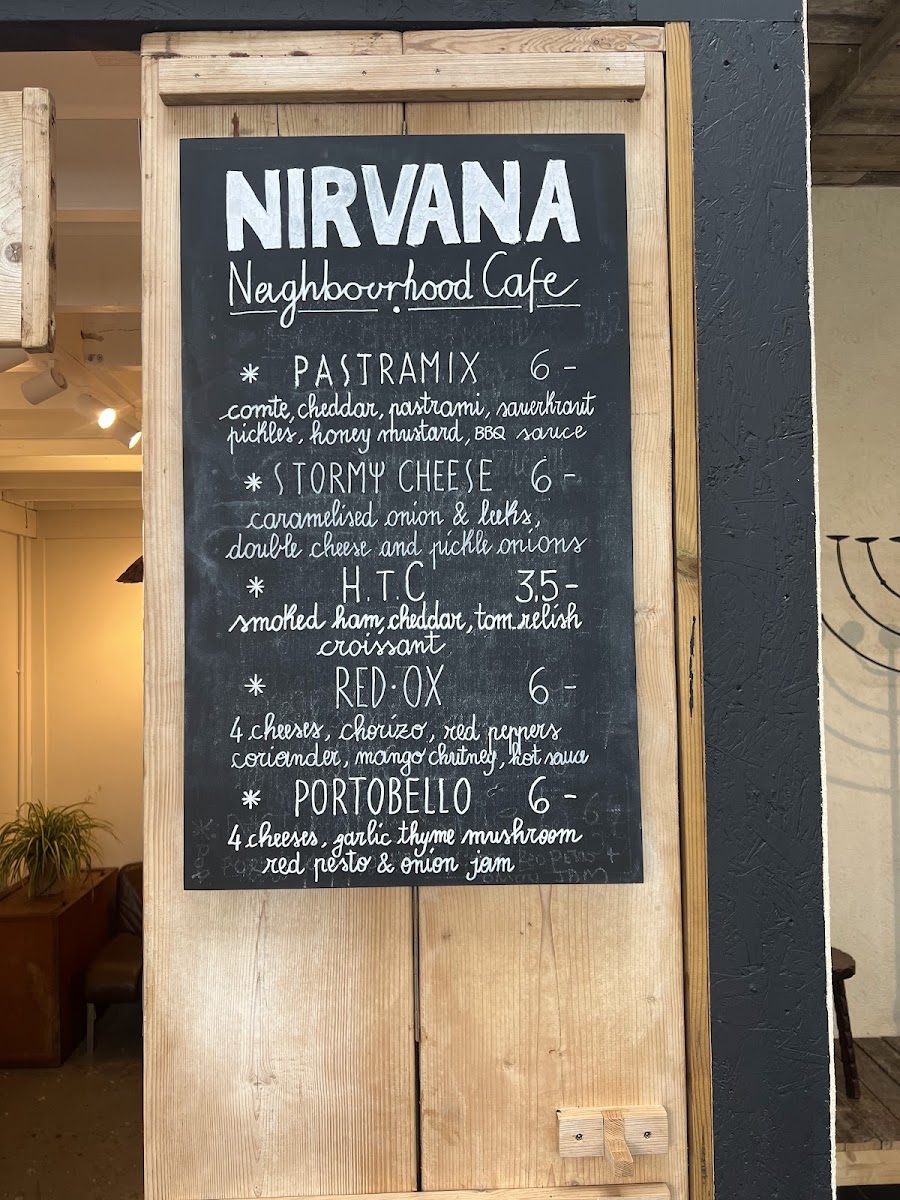 NIRVANA
Neighbourhood Cafe
* PASTRAMIX 6 -
comte, cheddar, pastrami, sauerkraut
pickles, honey mustard, BBQ sauce
* STORMY CHEESE 6 -
caramelised onion & leeks,
double cheese and pickle onions
* H.T.C 3,5 -
smoked ham, cheddar, tom.relish
croissant
* RED·OX 6 -
4 cheeses, chorizo, red peppers
coriander, mango chutney, hot sauce
* PORTOBELLO 6 -
4 cheeses, garlic thyme mushroom
red pesto & onion jam